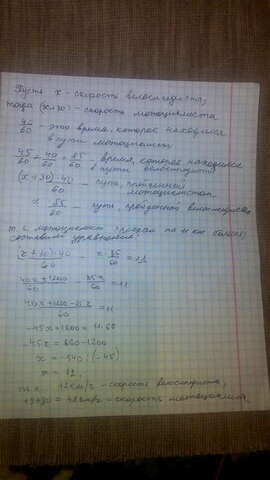 Пусть x - скорость велосипедиста,
тогда (x+30) - скорость мотоциклиста
40/60 - это время, которое находился
в пути мотоциклист
45/60 + 40/60 = 85/60 - время, которое находился
в пути велосипедист
(x+30)·40/60 - путь, пройденный
мотоциклистом
x 85/60 - путь, пройденный велосипедистом
т. к. мотоциклист проехал на 11 км больше
составим уравнение:
(x+30)·40/60 - x 85/60 = 11
40x+1200/60 - 85x/60 = 11
40x+1200-85x/60 = 11
-45x+1200 = 11·60
-45x = 660-1200
x = -540:(-45)
x = 12
12км/ч - скорость велосипедиста,
12+30 = 42км/ч - скорость мотоциклиста.